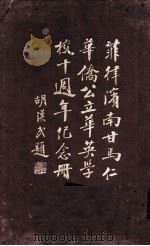 菲律濱南甘馬仁
華僑公立華英學
校十週年紀念冊
胡漢民題